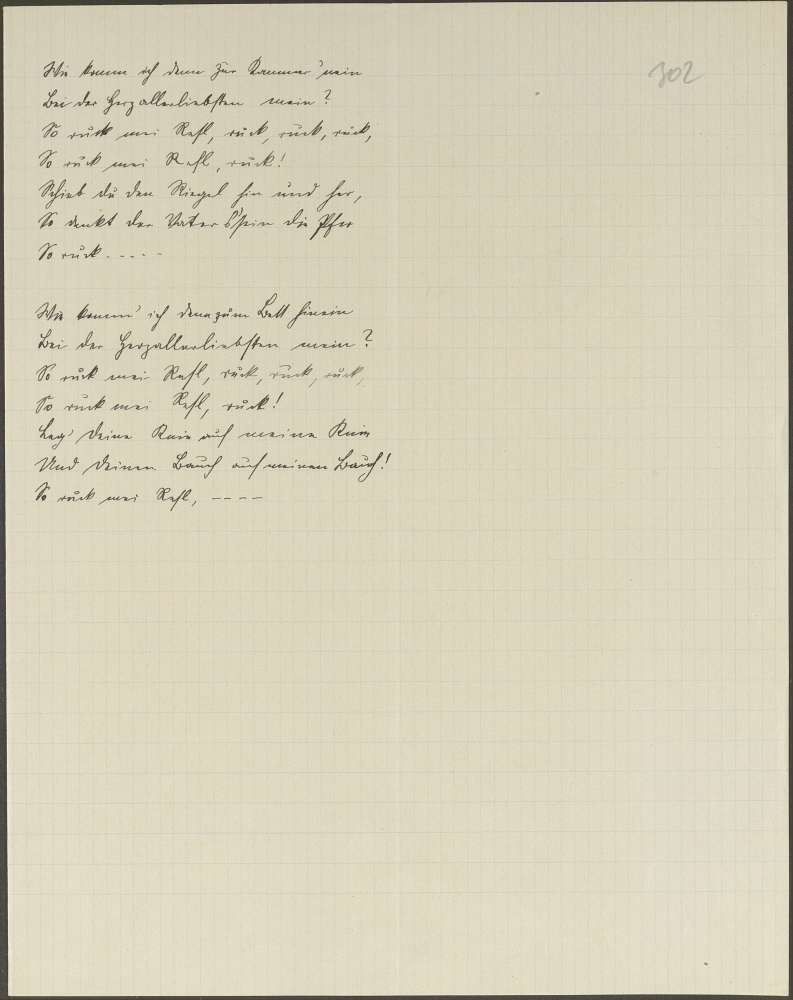 302
Wie komm ich denn zur Kammer 'nein
Bei der Herzallerliebsten mein?
So ruck mei Resl, ruck, ruck, ruck,
So ruck mei Resl, ruck!
Schieb du den Riegel hin und her,
So denkt der Vater s'sein die Pfer
So ruck - - - -
Wie komm' ich denn zum Bett hinein
Bei der Herzallerliebsten mein?
So ruck mei Resl, ruck, ruck, ruck,
So ruck mei Resl, ruck!
Leg' deine Knie auf meine Knie
Und deinen Bauch auf meinen Bauch!
So ruck mei Resl, - - - -